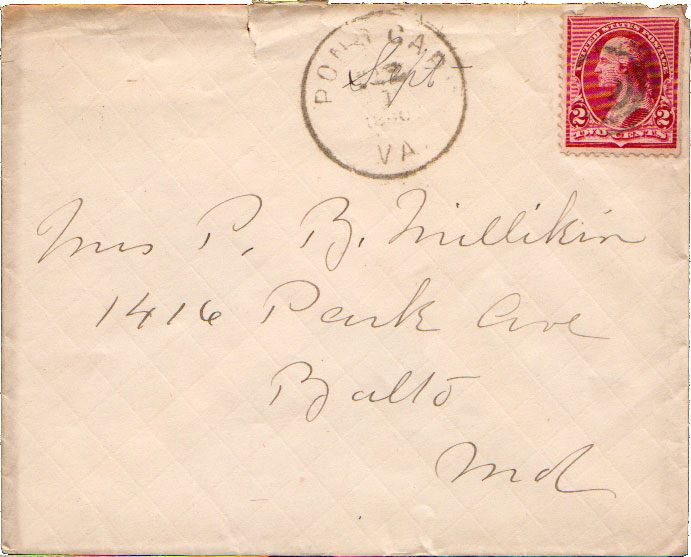 Sept
1
VA
UNITED STATES POSTAGE
2 2
TWO CENTS
Mrs P. B. Millikin
1416 Park Ave
Balto
Md